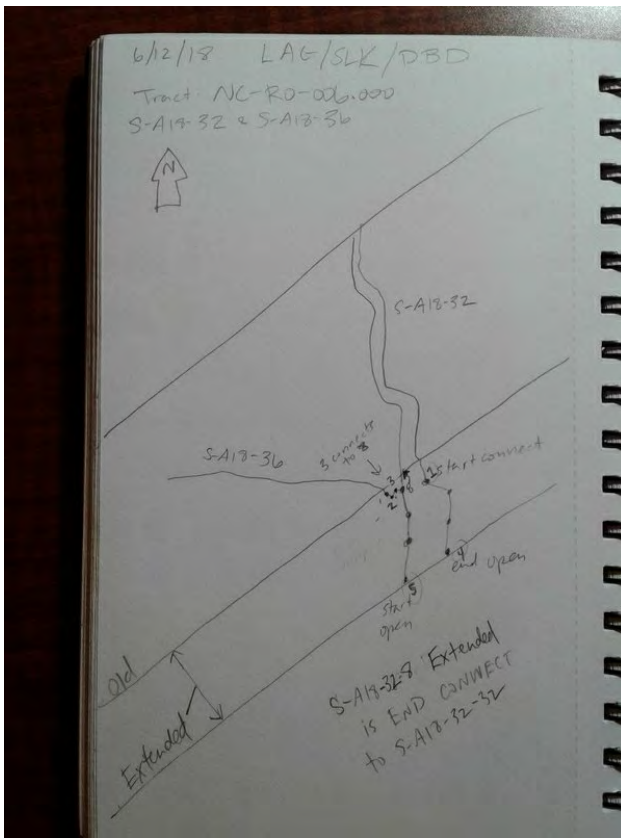 6/12/18 LAG/SLK/DBD
Tract: NC-RO-006.000
S-A18-32 & S-A18-36
N
S-A18-32
3 connects
to 8
S-A18-36
1 start connect
3
8
2
4
end open
5
start
open
old
Extended
S-A18-32-8 Extended
is END CONNECT
to S-A18-32-32